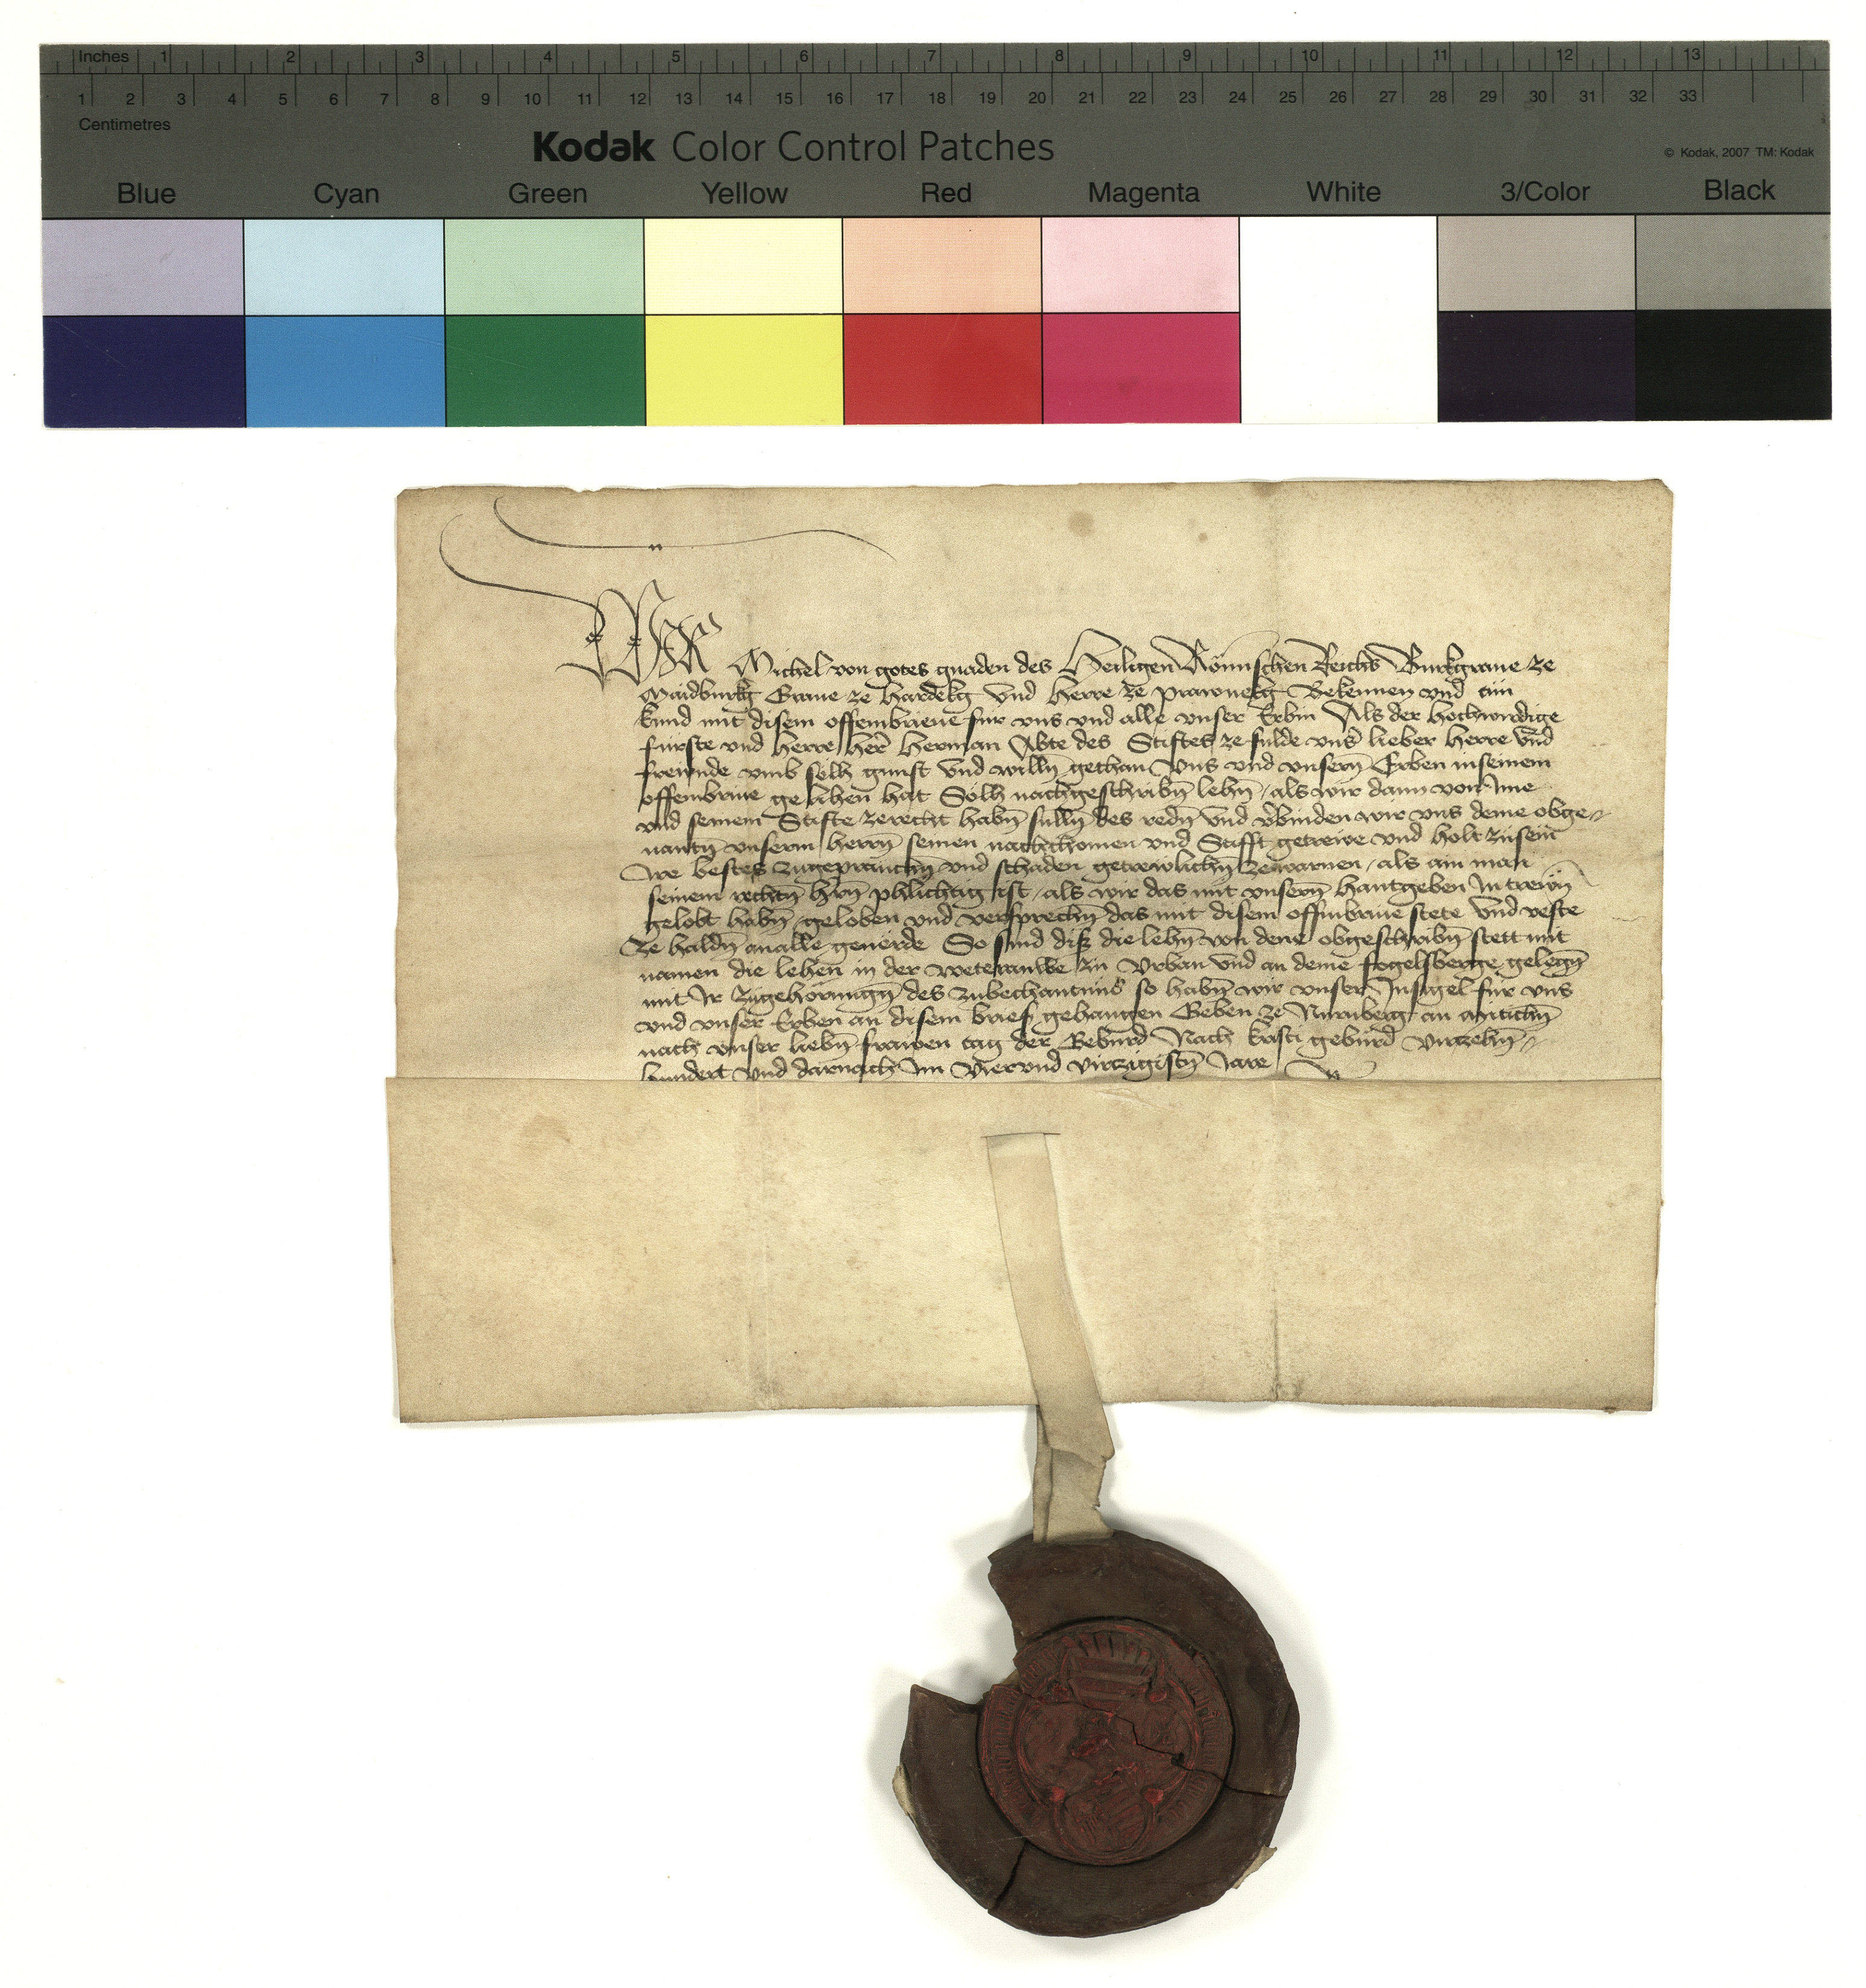 Inches 1 2 3 4 5 6 7 8 9 10 11 12 13
1 2 3 4 5 6 7 8 9 10 11 12 13 14 15 16 17 18 19 20 21 22 23 24 25 26 27 28 29 30 31 32 33
Centimetres
Kodak Color Control Patches
© Kodak, 2007 TM: Kodak
Blue Cyan Green Yellow Red Magenta White 3/Color Black
Wir Michel von gotes gnaden des Heiligen Römischen Reichs Burkgraue ze
Maidburkg Graue ze Hardekg vnd Herre ze prawnekg Bekennen vnd tun
kund mit disem offembrieue fur vns vnd alle vnser Erbin Als der hochwirdige
furste vnd herre her herman Abte des Stiftes ze fulde vnser lieber herre vnd
freunde vmb sölh gunst vnd willn gethan vns vnd vnsern Erben in seinem
offembriue gelihen hat Sölh nachgeschribn lehn als wir dann von Ime
vnd seinem Stifte zerecht habn sulln des redn vnd verbinden wir vns deme obge
nantn vnserm herrn seinen nachkhomen vnd Stifft getreue vnd holt zusein
Ire bestes zugepruchn vnd schaden getrewlichn zewarnen als ain man
seinem rechtn hern phlichtig ist als wir das mit vnsern hantgeben In trewn
gelobt habn geloben vnd versprechn das mit disem offinbriue stete vnd veste
ze haldn an alle geuerde So sind disz die lehn von dene obgeschribn stett mit
namen die lehen in der wetterauwe zu Vrban vnd an deme fogelsberge gelegn
mit Ir zugehorungn des zubechantnus so habn wir vnser Insigel fur vns
vnd vnser Erben an disem brief gehangen Geben ze Nurnberg an mitichn
nach vnser liebn frawen tag der Geburd Nach kristi geburd virzehn
hundert vnd darnach Im Vier vnd virzigistn Jare